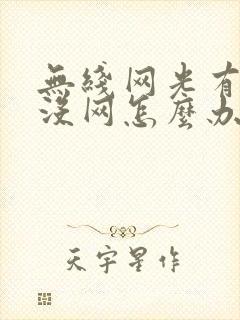 無綫网光有
没网怎麽办
天宇星作